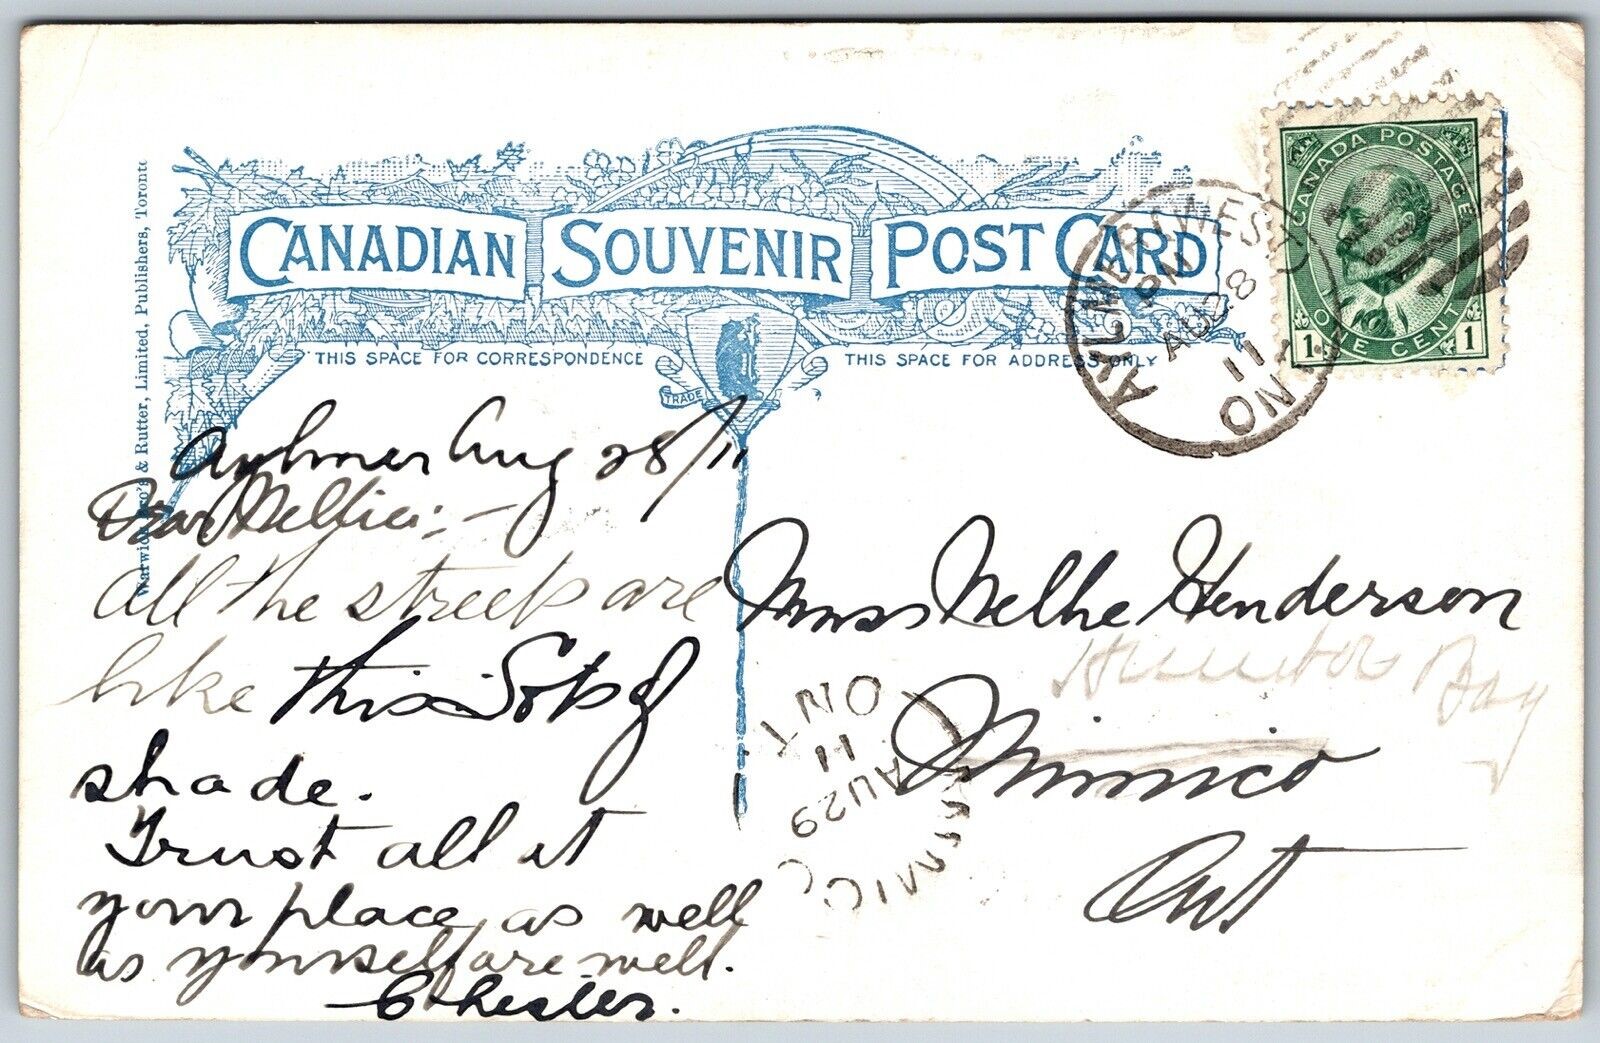 CANADIAN SOUVENIR POST CARD
THIS SPACE FOR CORRESPONDENCE
THIS SPACE FOR ADDRESS ONLY
TRADE
Warwick Bro's & Rutter, Limited, Publishers, Toronto
CANADA POSTAGE
1 ONE CENT 1
AYLMER WEST
PM
AU 28
11
ONT
Aylmer Aug 28/11
Dear Nellie:-
all the streets are
like this. Lots of
shade.
Trust all at
your place, as well
as yourself are well.
Chester.
Miss Nellie Henderson
Mimico
Ont
MIMICO
AU 29
11
ONT
Bay